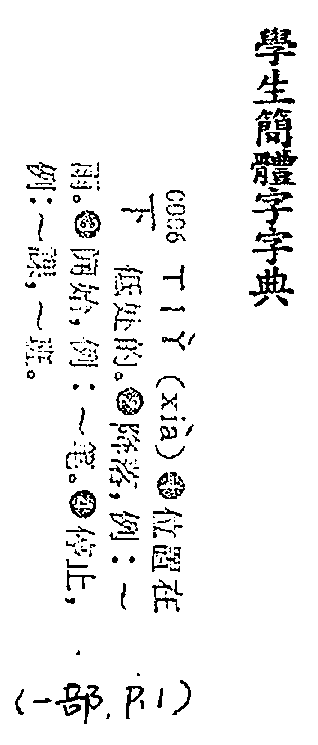 學生簡體字字典
0006 ㄒㄧㄚˋ (xià) ❶位置在
下 低处的。❷降落,例:~
雨。❸開始,例:~笔。❹停止,
例:~課,~班。
(一部, P.1)